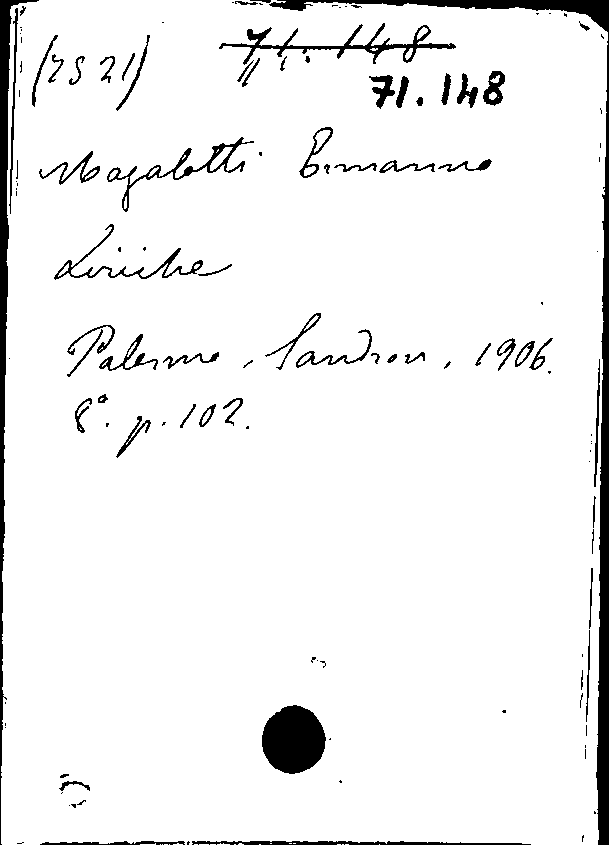 (7S 21) 71.148
71.148
Magalotti Ermanno
Liriche
Palermo, Sandron, 1906.
8°. p. 102.